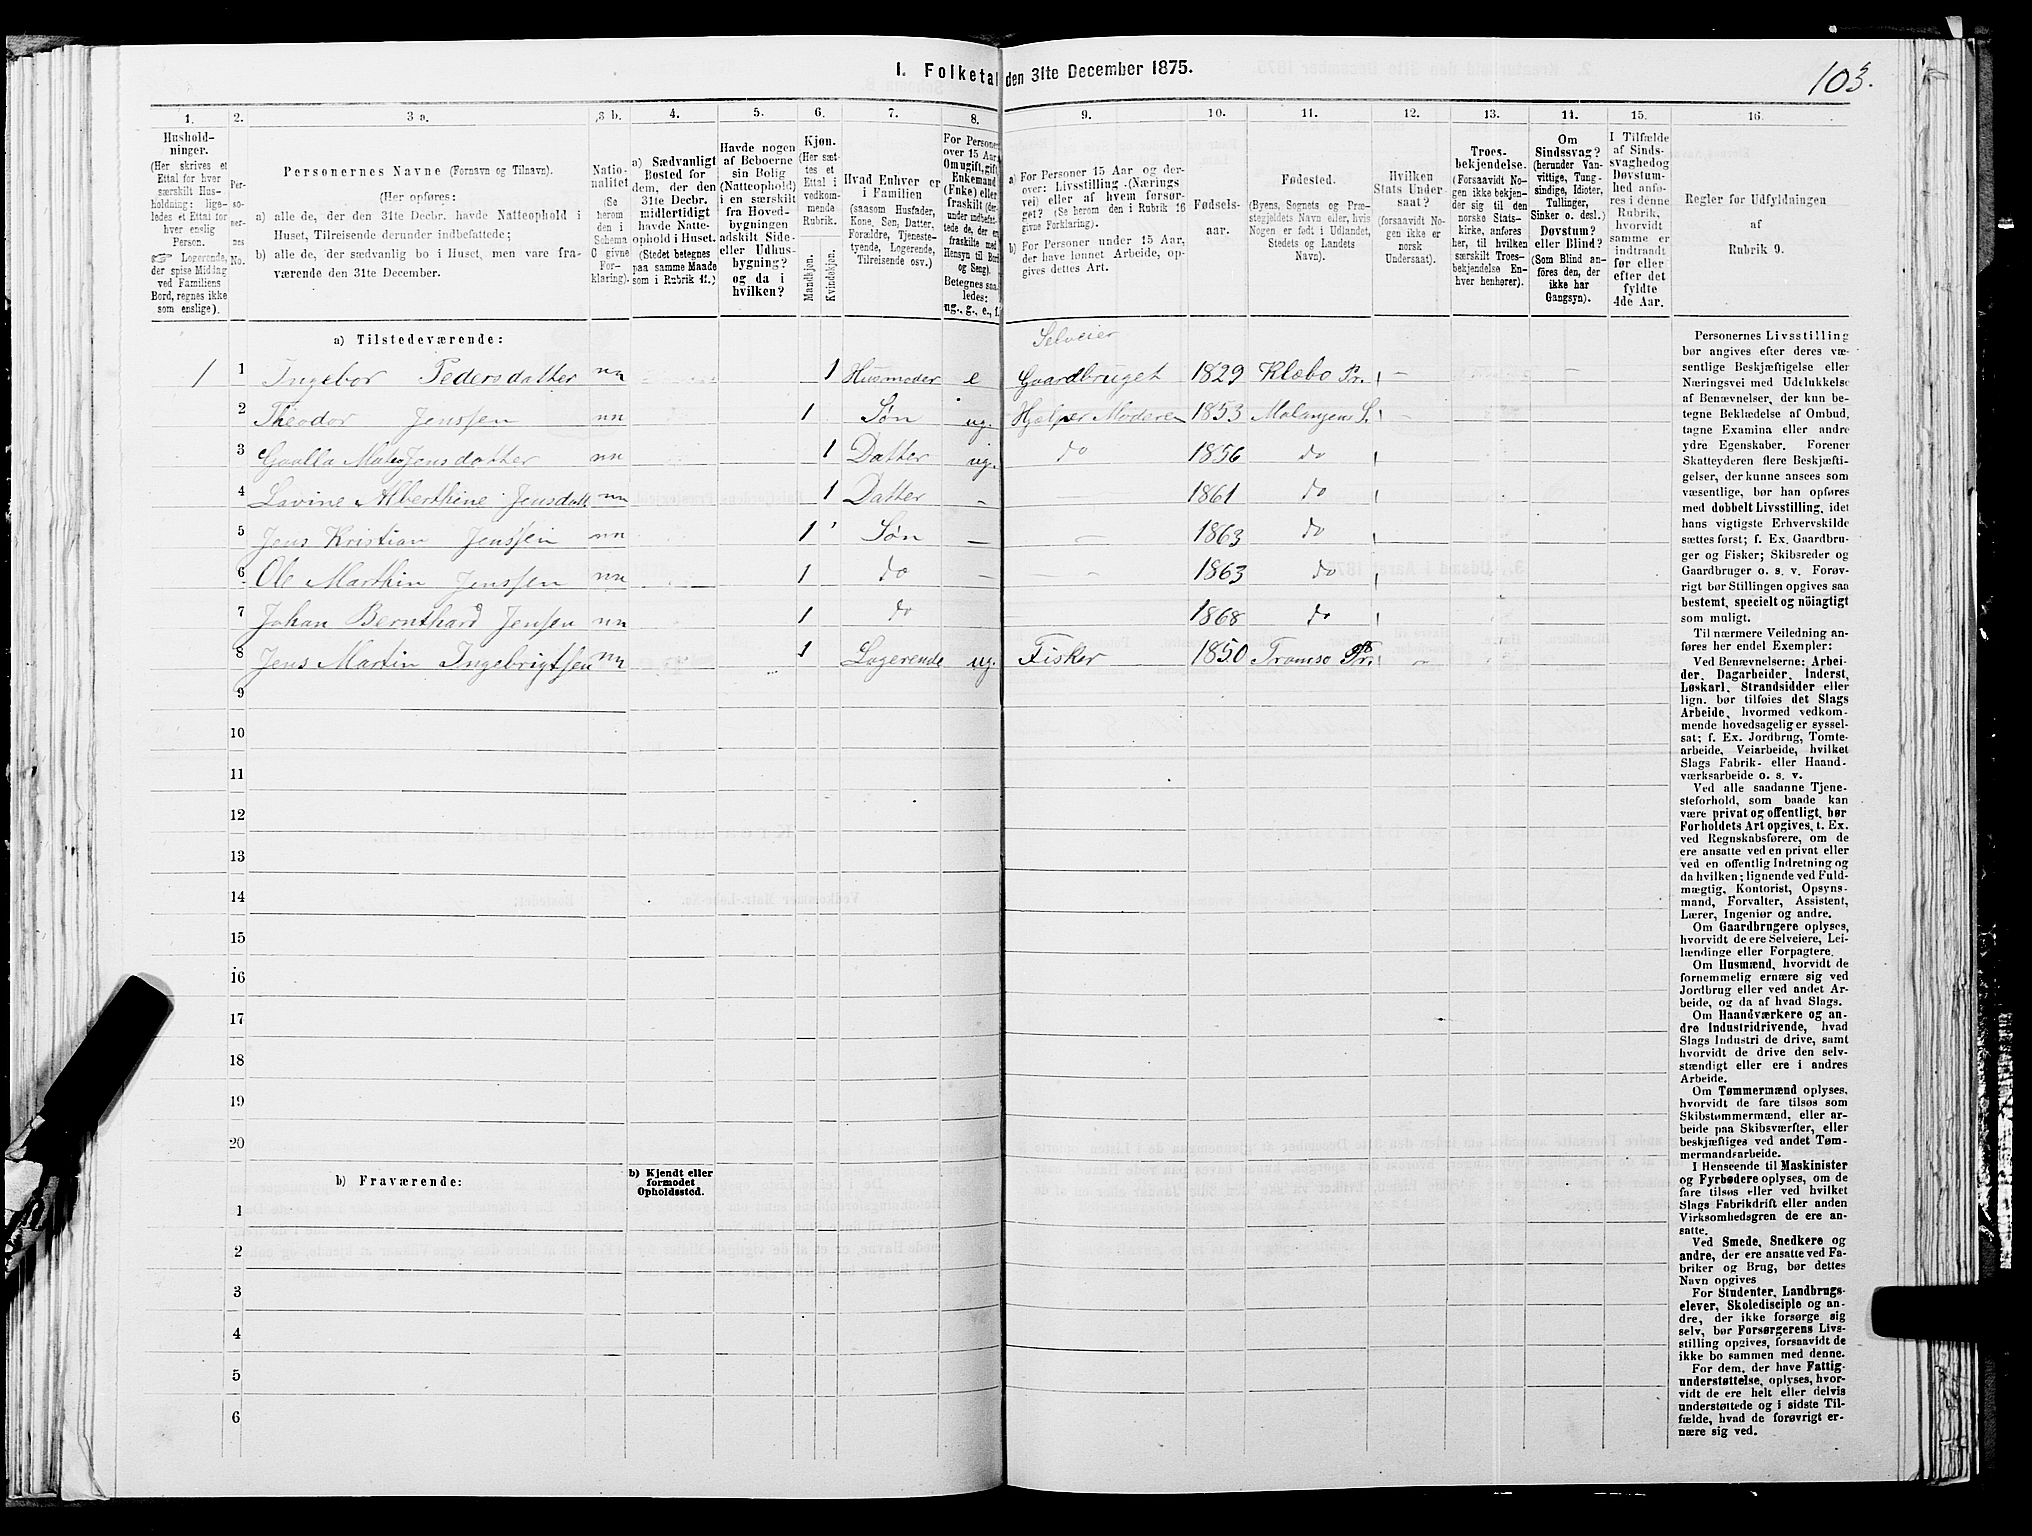 I. Folketal den 31te December 1875.
103.
1. 2. 3 a. 3 b. 4. 5. 6. 7. 8. 9. 10. 11. 12. 13. 14. 15. 16.
Hushold-
ninger.
(Her skrives et
Ettal for hver
særskilt Hus-
holdning; lige-
ledes et Ettal for
hver enslig
Person.
☞ Logerende,
der spise Middag
ved Familiens
Bord, regnes ikke
som enslige).
Per-
so-
ner-
nes
No.
Personernes Navne (Fornavn og Tilnavn).
(Her opføres:
a) alle de, der den 31te Decbr. havde Natteophold i
Huset, Tilreisende derunder indbefattede;
b) alle de, der sædvanlig bo i Huset, men vare fra-
værende den 31te December.
Natio-
nalitet
(Se
herom
den i
Schema
C givne
For-
klaring).
a) Sædvanligt
Bosted for
dem, der den
31te Decbr.
midlertidigt
havde Natte-
ophold i Huset.
(Stedet betegnes
paa samme Maade
som i Rubrik 11.)
Havde nogen
af Beboerne
sin Bolig
(Natteophold)
i en særskilt
fra Hoved-
bygningen
adskilt Side-
eller Udhus-
bygning?
og da i
hvilken?
Kjøn.
(Her sæt-
tes et
Ettal i
vedkom-
mende
Rubrik.
Mandkjøn.
Kvindekjøn.
Hvad Enhver er
i Familien
(saasom Husfader,
Kone, Søn, Datter,
Forældre, Tjeneste-
tyende, Logerende,
Tilreisende osv.)
For Personer
over 15 Aar:
Omugift, gift,
Enkemand
(Enke) eller
fraskilt (der-
under indbefat-
tede de, der ere
fraskilte med
Hensyn til Bord
og Seng).
Betegnes saa-
ledes:
ug., g., e., f.
a) For Personer 15 Aar og der-
over: Livsstilling (Nærings-
vei) eller af hvem forsør-
get? (Se herom den i Rubrik 16
givne Forklaring).
b) For Personer under 15 Aar,
der have lønnet Arbeide, op-
gives dettes Art.
Fødsels-
aar.
Fødested.
(Byens, Sognets og Præ-
stegjeldets Navn eller, hvis
Nogen er født i Udlandet,
Stedets og Landets
Navn).
Hvilken
Stats Under-
saat?
(forsaavidt No-
gen ikke er
norsk
Undersaat).
Troes-
bekjendelse.
(Forsaavidt No-
gen ikke bekjen-
der sig til den
norske Stats-
kirke, anføres
her, til hvilken
særskilt Troes-
bekjendelse En-
hver henhører).
Om
Sindssvag?
(herunder Van-
vittige, Tung-
sindige, Idioter,
Tullinger,
Sinker o. desl.)
Døvstum?
eller Blind?
(Som Blind an-
føres den, der
ikke har
Gangsyn).
I Tilfælde
af Sinds-
svaghed og
Døvstum-
hed anfø-
res i denne
Rubrik,
hvorvidt
samme er
indtraadt
før eller
efter det
fyldte
4de Aar.
Regler for Udfyldningen
af
Rubrik 9.
a) Tilstedeværende:
Selveier
1 1 Ingebor Pedersdatter nn 1 Husmoder e Gaardbruget 1829 Klæbo Pr.
2 Theodor Jenssen nn 1 Søn ug. Hjelper Moderen 1853 Malangens S.
3 Jensdatter nn 1 Datter ug. do 1856 do
4 Lavine Alberthine Jensdatt nn 1 Datter - - 1861 do
5 Jens Kristian Jenssen nn 1 Søn - - 1863 do
6 Ole Marthin Jenssen nn 1 do - - 1863 do
7 Johan Bernthard Jenssen nn 1 do 1868 do
8 Jens Martin Ingebrigtsen nn 1 Logerende ug. Fisker 1850 Tromsø Pr.
9
10
11
12
13
14
15
16
17
18
19
20
b) Fraværende:
b) Kjendt eller
formodet
Opholdssted.
1
2
3
4
5
6
Personernes Livsstilling
bør angives efter deres væ-
sentlige Beskjæftigelse eller
Næringsvei med Udelukkelse
af Benævnelser, der kun be-
tegne Beklædelse af Ombud,
tagne Examina eller andre
ydre Egenskaber. Forener
Skatteyderen flere Beskjæfti-
gelser, der kunne ansees som
væsentlige, bør han opføres
med dobbelt Livsstilling, idet
hans vigtigste Erhvervskilde
sættes først; f. Ex. Gaardbru-
ger og Fisker; Skibsreder og
Gaardbruger o. s. v. Forøv-
rigt bør Stillingen opgives saa
bestemt, specielt og nöiagtigt
som muligt.
Til nærmere Veiledning an-
føres her endel Exempler:
Ved Benævnelserne: Arbei-
der, Dagarbeider, Inderst,
Løskarl, Strandsidder eller
lign. bør tilføies det Slags
Arbeide, hvormed vedkom-
mende hovedsagelig er syssel-
sat; f. Ex. Jordbrug, Tomte-
arbeide, Veiarbeide, hvilket
Slags Fabrik- eller Haand-
værksarbeide o. s. v.
Ved alle saadanne Tjene-
steforhold, som baade kan
være privat og offentligt, bør
Forholdets Art opgives, t. Ex.
ved Regnskabsførere, om de
ere ansatte ved en privat eller
ved en offentlig Indretning og
da hvilken; lignende ved Fuld-
mægtig, Kontorist, Opsyns-
mand, Forvalter, Assistent,
Lærer, Ingeniør og andre.
Om Gaardbrugere oplyses,
hvorvidt de ere Selveiere, Lei-
lændinge eller Forpagtere.
Om Husmænd, hvorvidt de
fornemmelig ernære sig ved
Jordbrug eller ved andet Ar-
beide, og da af hvad Slags.
Om Haandværkere og an-
dre Industridrivende, hvad
Slags Industri de drive, samt
hvorvidt de drive den selv-
stændigt eller ere i andres
Arbeide.
Om Tømmermænd oplyses,
hvorvidt de fare tilsøs som
Skibstømmermænd, eller ar-
beide paa Skibsværfter, eller
beskjæftiges ved andet Tøm-
mermandsarbeide.
I Henseende til Maskinister
og Fyrbødere oplyses, om de
fare tilsøs eller ved hvilket
Slags Fabrikdrift eller anden
Virksomhedsgren de ere an-
satte.
Ved Smede, Snedkere og
andre, der ere ansatte ved Fa-
briker og Brug, bør dettes
Navn opgives
For Studenter, Landbrugs-
elever, Skoledisciple og an-
dre, der ikke forsørge sig
selv, bør Forsørgerens Livs-
stilling opgives, forsaavidt de
ikke bo sammen med denne.
For dem, der have Fattig-
understøttelse, oplyses, hvor-
vidt de ere helt eller delvis
understøttede og i sidste Til-
fælde, hvad de forøvrigt er-
nære sig ved.